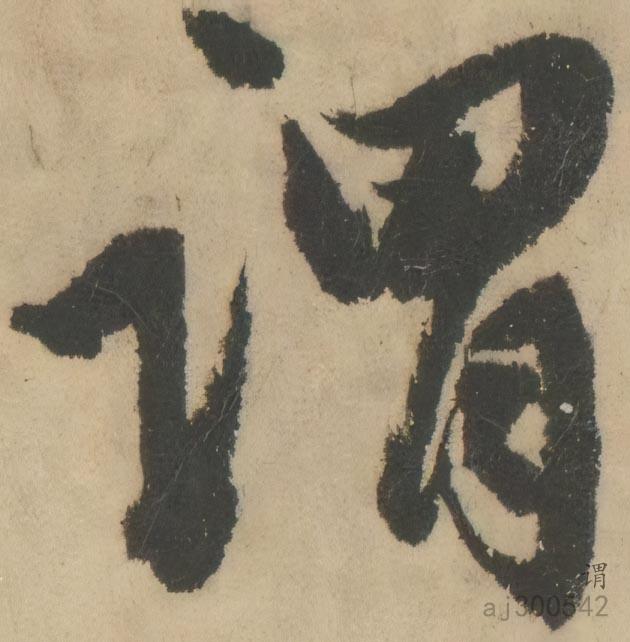 谓
谓
aj300542